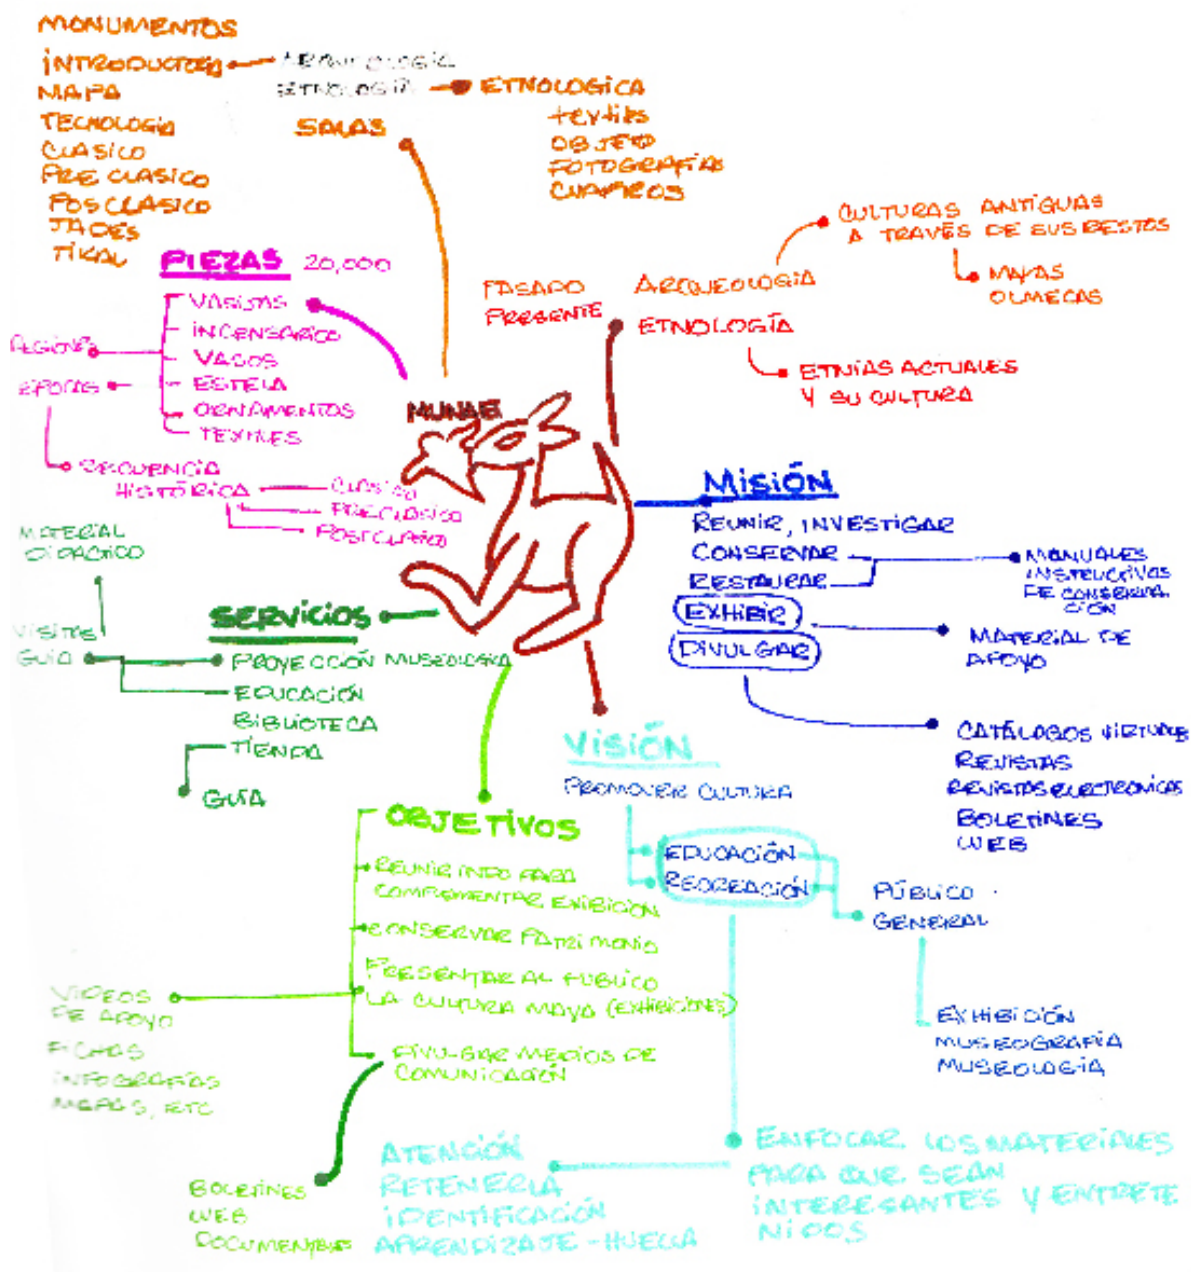 MONUMENTOS
INTRODUCTORIA
MAPA
TECNOLOGÍA
CLASICO
PRE CLASICO
POSCLASICO
JADES
TIKAL
ARQUEOLOGIA
ETNOLOGÍA
SALAS
ETNOLOGICA
textiles
OBJETO
FOTOGRAFÍAS
CUADROS
PIEZAS 20,000
VASIJAS
INCENSARIO
VASOS
ESTELA
ORNAMENTOS
TEXTILES
REGIONES
EPOCAS
SECUENCIA
HISTÓRICA
CLASICO
PRECLASICO
POSTCLASICO
PASADO
PRESENTE
ARQUEOLOGÍA
ETNOLOGÍA
CULTURAS ANTIGUAS
A TRAVÉS DE SUS RESTOS
MAYAS
OLMECAS
ETNIAS ACTUALES
Y SU CULTURA
MUNAE
MISIÓN
REUNIR, INVESTIGAR
CONSERVAR
RESTAURAR
EXHIBIR
DIVULGAR
MANUALES
INSTRUCTIVOS
DE CONSERVA
CIÓN
MATERIAL DE
APOYO
CATÁLOGOS VIRTUALES
REVISTAS
REVISTAS ELECTRONICAS
BOLETINES
WEB
MATERIAL
DIDACTICO
VISITAS
GUIA
SERVICIOS
PROYECCIÓN MUSEOLOGIA
EDUCACIÓN
BIBLIOTECA
TIENDA
GUÍA
VISIÓN
PROMOVER CULTURA
EDUCACIÓN
RECREACIÓN
PÚBLICO
GENERAL
EXHIBICIÓN
MUSEOGRAFÍA
MUSEOLOGÍA
OBJETIVOS
REUNIR INFO PARA
COMPLEMENTAR EXIBICIÓN
CONSERVAR PATRIMONIO
PRESENTAR AL PUBLICO
LA CULTURA MAYA (EXHIBICIONES)
DIVULGAR MEDIOS DE
COMUNICACIÓN
VIDEOS
DE APOYO
FICHAS
INFOGRAFÍAS
MAPAS, ETC
BOLETINES
WEB
DOCUMENTALES
ATENCIÓN
RETENERLA
IDENTIFICACIÓN
APRENDIZAJE-HUELLA
ENFOCAR LOS MATERIALES
PARA QUE SEAN
INTERESANTES Y ENTRETE
NIDOS